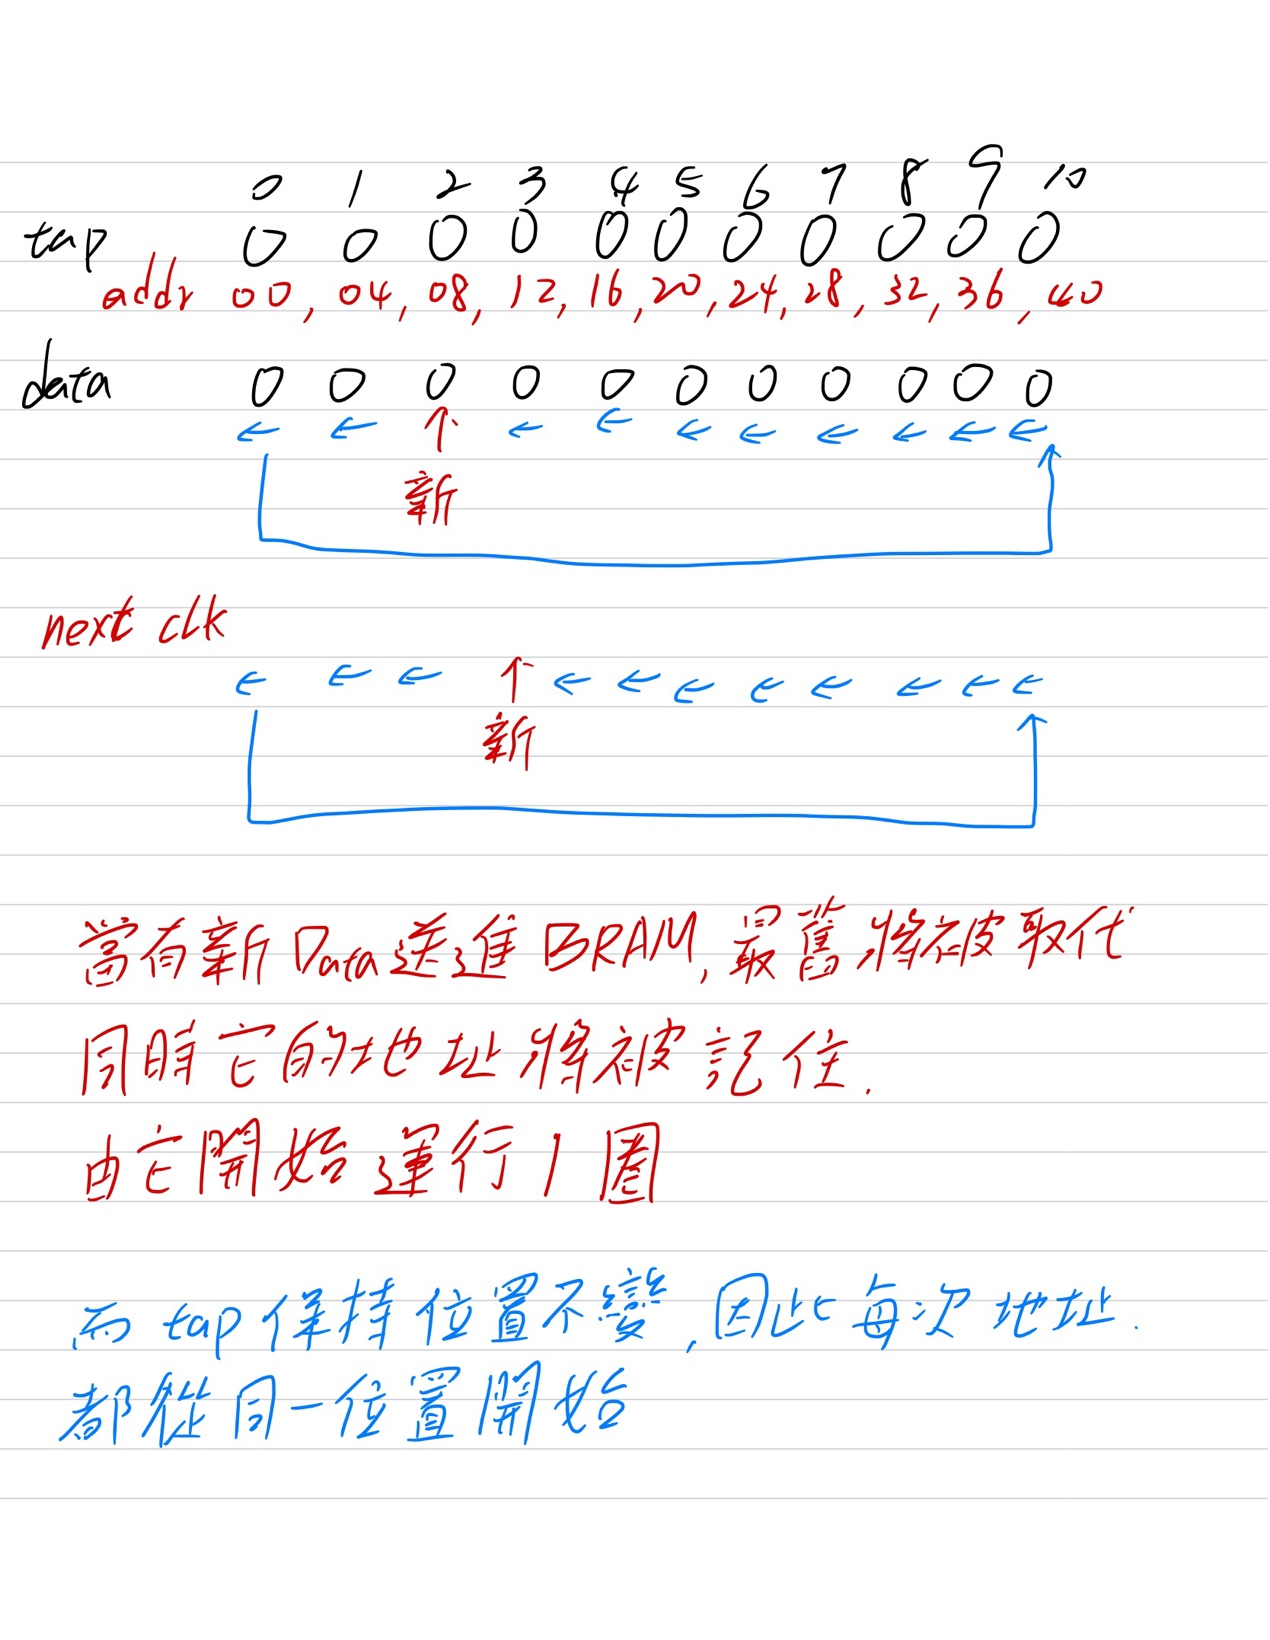 0 1 2 3 4 5 6 7 8 9 10
tap 0 0 0 0 0 0 0 0 0 0 0
addr 00, 04, 08, 12, 16, 20, 24, 28, 32, 36, 40
data 0 0 0 0 0 0 0 0 0 0 0
新
next clk
新
當有新 Data 送進 BRAM, 最舊將被取代
同時它的地址將被記住.
由它開始運行1圈
而 tap 保持位置不變, 因此每次地址.
都從同一位置開始